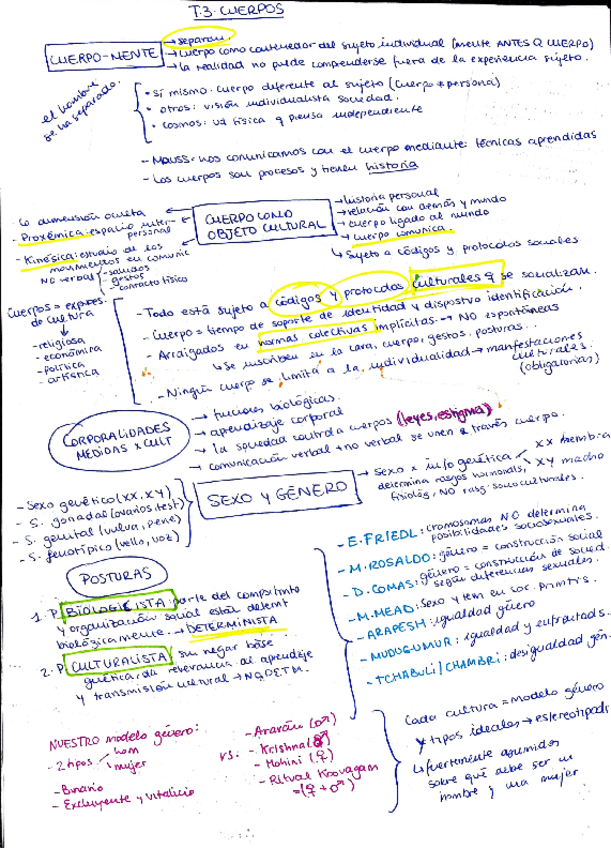 T.3. CUERPOS
CUERPO-MENTE
→ separan.
→ cuerpo como contenedor del sujeto individual (mente ANTES Q CUERPO)
→ la realidad no puede comprenderse fuera de la experiencia sujeto.
el hombre se ha separado.
• sí mismo: cuerpo diferente al sujeto (cuerpo ≠ persona)
• otros: visión individualista sociedad.
• cosmos: ud física q piensa independiente
- Mauss: nos comunicamos con el cuerpo mediante: técnicas aprendidas
- Los cuerpos son procesos y tienen historia
CUERPO COMO OBJETO CULTURAL
→ historia personal
→ relación con demás y mundo
→ cuerpo ligado al mundo
→ cuerpo comunica.
↳ sujeto a códigos y protocolos sociales
Lo dimensión oculta
- Proxémica: espacio interpersonal
- Kinésica: estudio de los movimientos en comunic NO verbal
- saludos
- gestos
- contacto físico
Cuerpos = expres. de cultura
→ religiosa
→ económica
→ política
→ artística
- Todo está sujeto a códigos y protocolos culturales q se socializan.
- Cuerpo = tiempo de soporte de identidad y dispstvo identificación.
- Arraigados en normas colectivas implícitas → NO espontáneas
↳ se inscriben en la cara, cuerpo, gestos, posturas...
- Ningún cuerpo se limita a la individualidad → manifestaciones culturales. (obligatorias)
CORPORALIDADES MEDIDAS X CULT
→ funciones biológicas.
→ aprendizaje corporal
→ la sociedad controla cuerpos (leyes, estigma)
→ comunicación verbal + no verbal se unen a través cuerpo.
SEXO Y GÉNERO
→ Sexo x info genética
XX hembra
XY macho
determina rasgos hormonals, fisiológ, NO rasg. socioculturales.
- Sexo genético (XX, XY)
- S. gonadal (ovarios, test)
- S. genital (vulva, pene)
- S. fenotípico (vello, voz)
POSTURAS
1. P. BIOLOGICISTA: parte del comprtmto y organización social están detemt biológicamente. → DETERMINISTA
2. P. CULTURALISTA: sin negar base genética, da relevancia al aprendizaje y transmisión cultural → NO DETM.
- E. FRIEDL: cromosomas NO determina posibilidades sociosexuales.
- M. ROSALDO: género = construcción social
- D. COMAS: género = construcción de socied. según diferencias sexuales.
- M. MEAD: Sexo y tem en soc. primtvs.
- ARAPESH: igualdad género
- MUDUGUMUR: igualdad y
- TCHABULI/CHAMBRI: desigualdad gén
NUESTRO modelo género:
- 2 tipos
hom
mujer
- Binario
- Excluyente y vitalicio
vs.
- Aravan (♂)
- Krishna (♂)
- Mohini (♀)
- Ritual Koovagam = (♀ + ♂)
Cada cultura = modelo género
y tipos ideales → estereotipads
↳ fuertemente asumidos sobre qué debe ser un hombre y una mujer